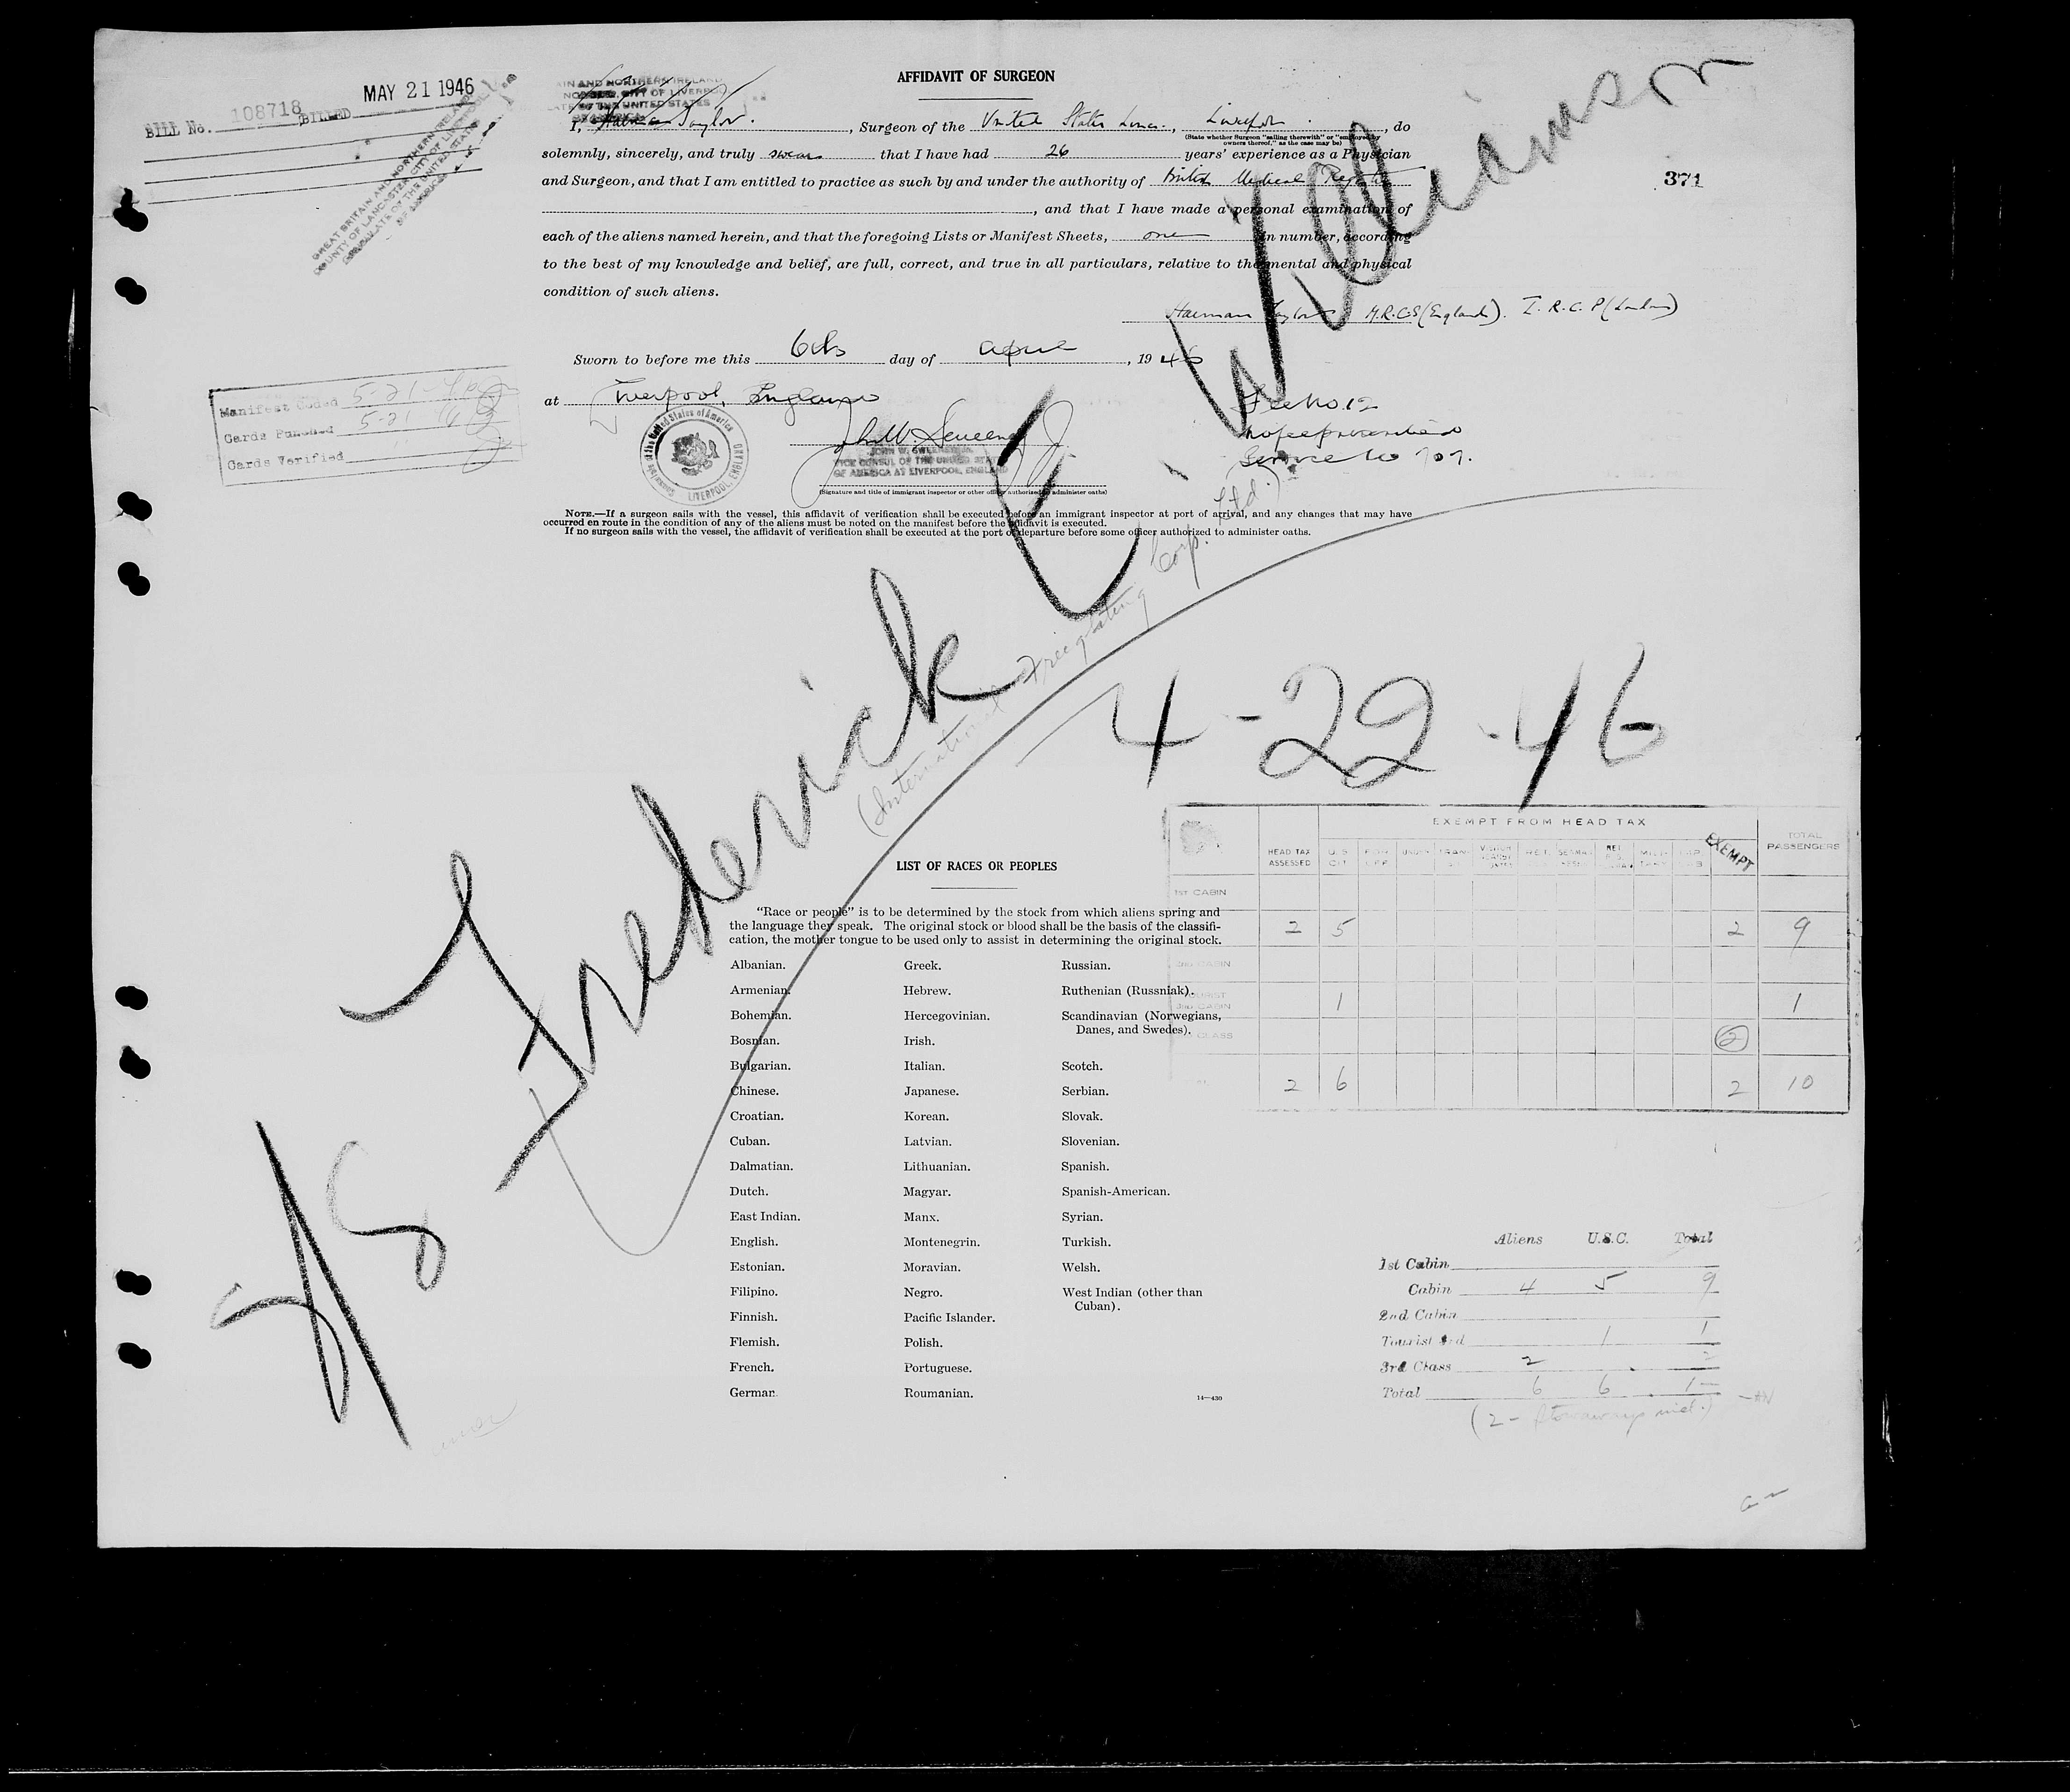 MAY 21 1946
BILL No. 108718 BILLED
GREAT BRITAIN AND NORTHERN IRELAND
COUNTY OF LANCASTER, CITY OF LIVERPOOL
CONSULATE OF THE UNITED STATES
OF AMERICA
AFFIDAVIT OF SURGEON
371
I, Taylor. , Surgeon of the United States Lines, Liverpool , do
(State whether Surgeon "sailing therewith" or "employed by
owners thereof," as the case may be)
solemnly, sincerely, and truly swear that I have had 26 years' experience as a Physician
and Surgeon, and that I am entitled to practice as such by and under the authority of British Medical Register
, and that I have made a personal examination of
each of the aliens named herein, and that the foregoing Lists or Manifest Sheets, one in number, according
to the best of my knowledge and belief, are full, correct, and true in all particulars, relative to the mental and physical
condition of such aliens.
Taylor M.R.C.S (England). L.R.C.P (London)
Sworn to before me this 6th day of April , 1946
at Liverpool, England
Fee No. 12
No fee prescribed
Service No 707.
JOHN W. SWEENEY, JR.
VICE CONSUL OF THE UNITED STATES
OF AMERICA AT LIVERPOOL, ENGLAND
(Signature and title of immigrant inspector or other officer authorized to administer oaths)
LIVERPOOL, ENGLAND
Manifest Coded 5-21-46
Cards Punched 5-21 46
Cards Verified
NOTE.—If a surgeon sails with the vessel, this affidavit of verification shall be executed before an immigrant inspector at port of arrival, and any changes that may have
occurred en route in the condition of any of the aliens must be noted on the manifest before the affidavit is executed.
If no surgeon sails with the vessel, the affidavit of verification shall be executed at the port of departure before some officer authorized to administer oaths.
S/S Frederick E. Williamson
(International Freighting Corp. Ltd.)
4-22-46
EXEMPT FROM HEAD TAX
HEAD TAX
ASSESSED
U.S.
CIT
EXEMPT
TOTAL
PASSENGERS
1st CABIN
2 5 2 9
2nd CABIN
TOURIST
3rd CABIN
1 1
CLASS
2
2 6 2 10
LIST OF RACES OR PEOPLES
"Race or people" is to be determined by the stock from which aliens spring and
the language they speak. The original stock or blood shall be the basis of the classifi-
cation, the mother tongue to be used only to assist in determining the original stock.
Albanian.
Armenian.
Bohemian.
Bosnian.
Bulgarian.
Chinese.
Croatian.
Cuban.
Dalmatian.
Dutch.
East Indian.
English.
Estonian.
Filipino.
Finnish.
Flemish.
French.
German.
Greek.
Hebrew.
Hercegovinian.
Irish.
Italian.
Japanese.
Korean.
Latvian.
Lithuanian.
Magyar.
Manx.
Montenegrin.
Moravian.
Negro.
Pacific Islander.
Polish.
Portuguese.
Roumanian.
Russian.
Ruthenian (Russniak).
Scandinavian (Norwegians,
Danes, and Swedes).
Scotch.
Serbian.
Slovak.
Slovenian.
Spanish.
Spanish-American.
Syrian.
Turkish.
Welsh.
West Indian (other than
Cuban).
14—430
Aliens U.S.C. Total
1st Cabin
Cabin 4 5 9
2nd Cabin
Tourist 3rd 1 1
3rd Class 2 2
Total 6 6
(2 - Stowaways incl.)